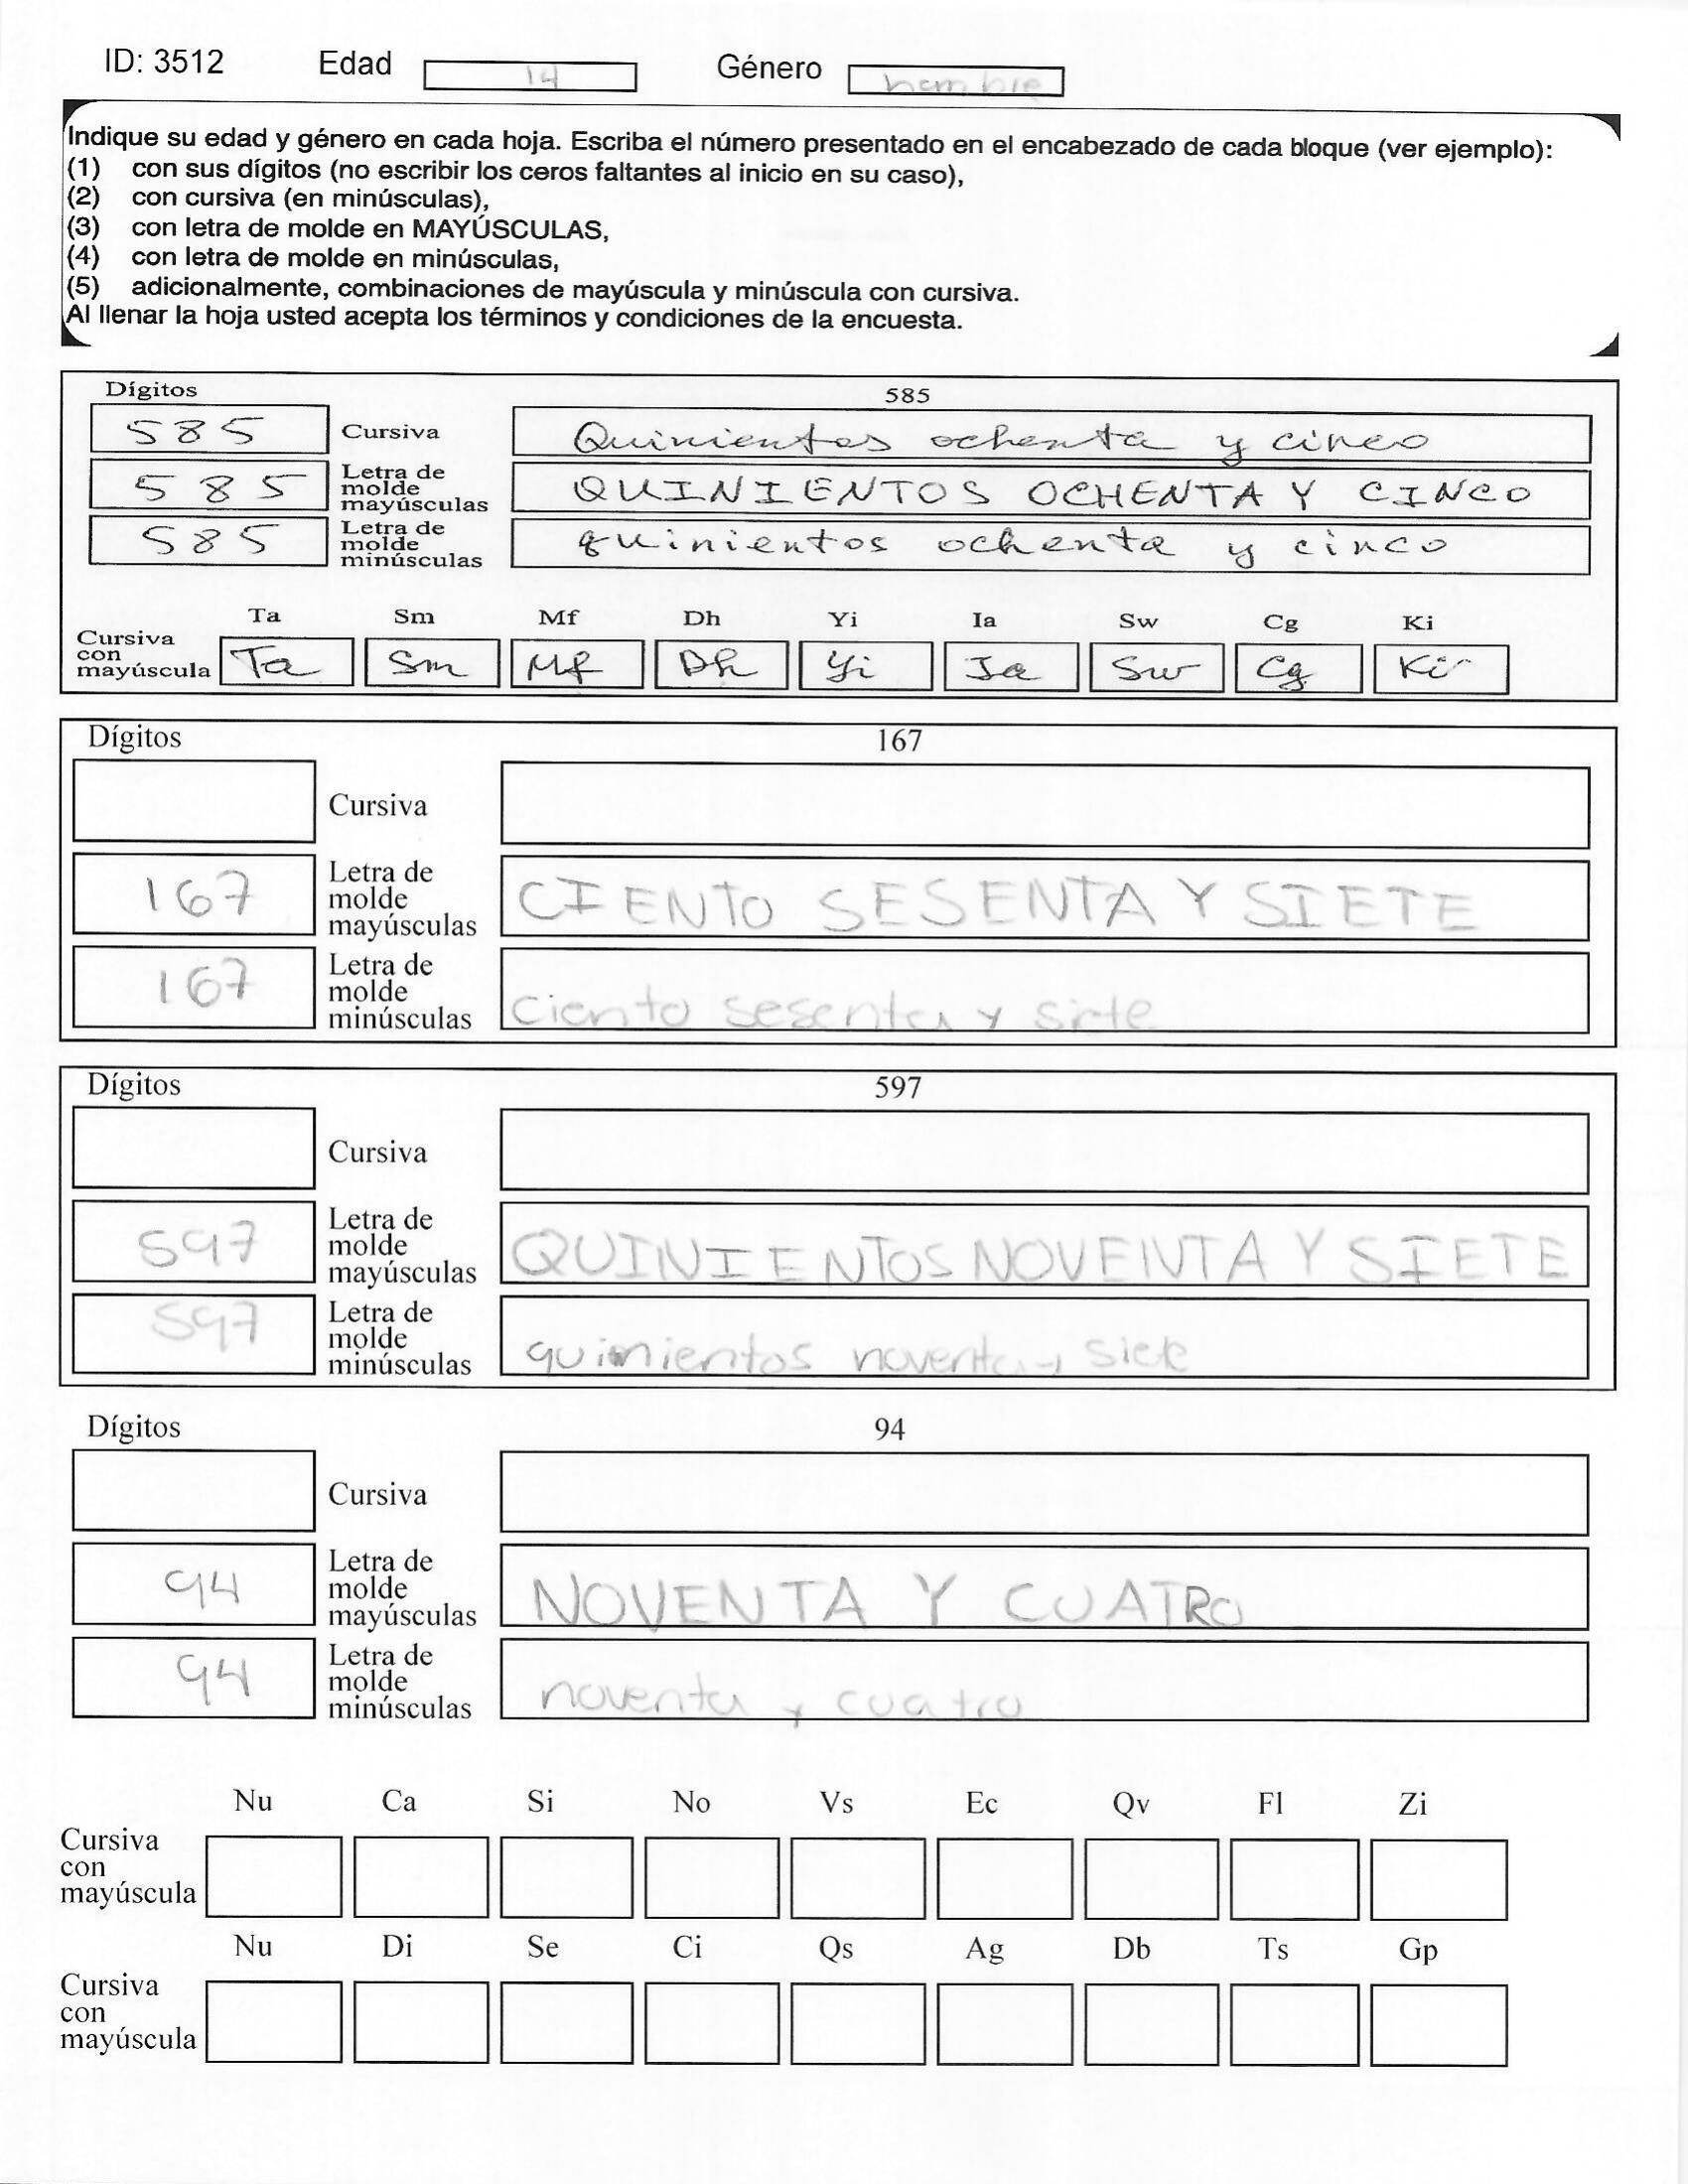 ID: 3512 Edad 14 Género hombre
Indique su edad y género en cada hoja. Escriba el número presentado en el encabezado de cada bloque (ver ejemplo):
(1) con sus dígitos (no escribir los ceros faltantes al inicio en su caso),
(2) con cursiva (en minúsculas),
(3) con letra de molde en MAYÚSCULAS,
(4) con letra de molde en minúsculas,
(5) adicionalmente, combinaciones de mayúscula y minúscula con cursiva.
Al llenar la hoja usted acepta los términos y condiciones de la encuesta.
Dígitos 585
585 Cursiva Quinientos ochenta y cinco
585 Letra de molde mayúsculas QUINIENTOS OCHENTA Y CINCO
585 Letra de molde minúsculas quinientos ochenta y cinco
Ta Sm Mf Dh Yi Ia Sw Cg Ki
Cursiva con mayúscula Ta Sm Mf Dh Yi Ia Sw Cg Ki
Dígitos 167
Cursiva
167 Letra de molde mayúsculas CIENTO SESENTA Y SIETE
167 Letra de molde minúsculas ciento sesenta y siete
Dígitos 597
Cursiva
597 Letra de molde mayúsculas QUINIENTOS NOVENTA Y SIETE
597 Letra de molde minúsculas quinientos noventa y siete
Dígitos 94
Cursiva
94 Letra de molde mayúsculas NOVENTA Y CUATRO
94 Letra de molde minúsculas noventa y cuatro
Nu Ca Si No Vs Ec Qv Fl Zi
Cursiva con mayúscula
Nu Di Se Ci Qs Ag Db Ts Gp
Cursiva con mayúscula